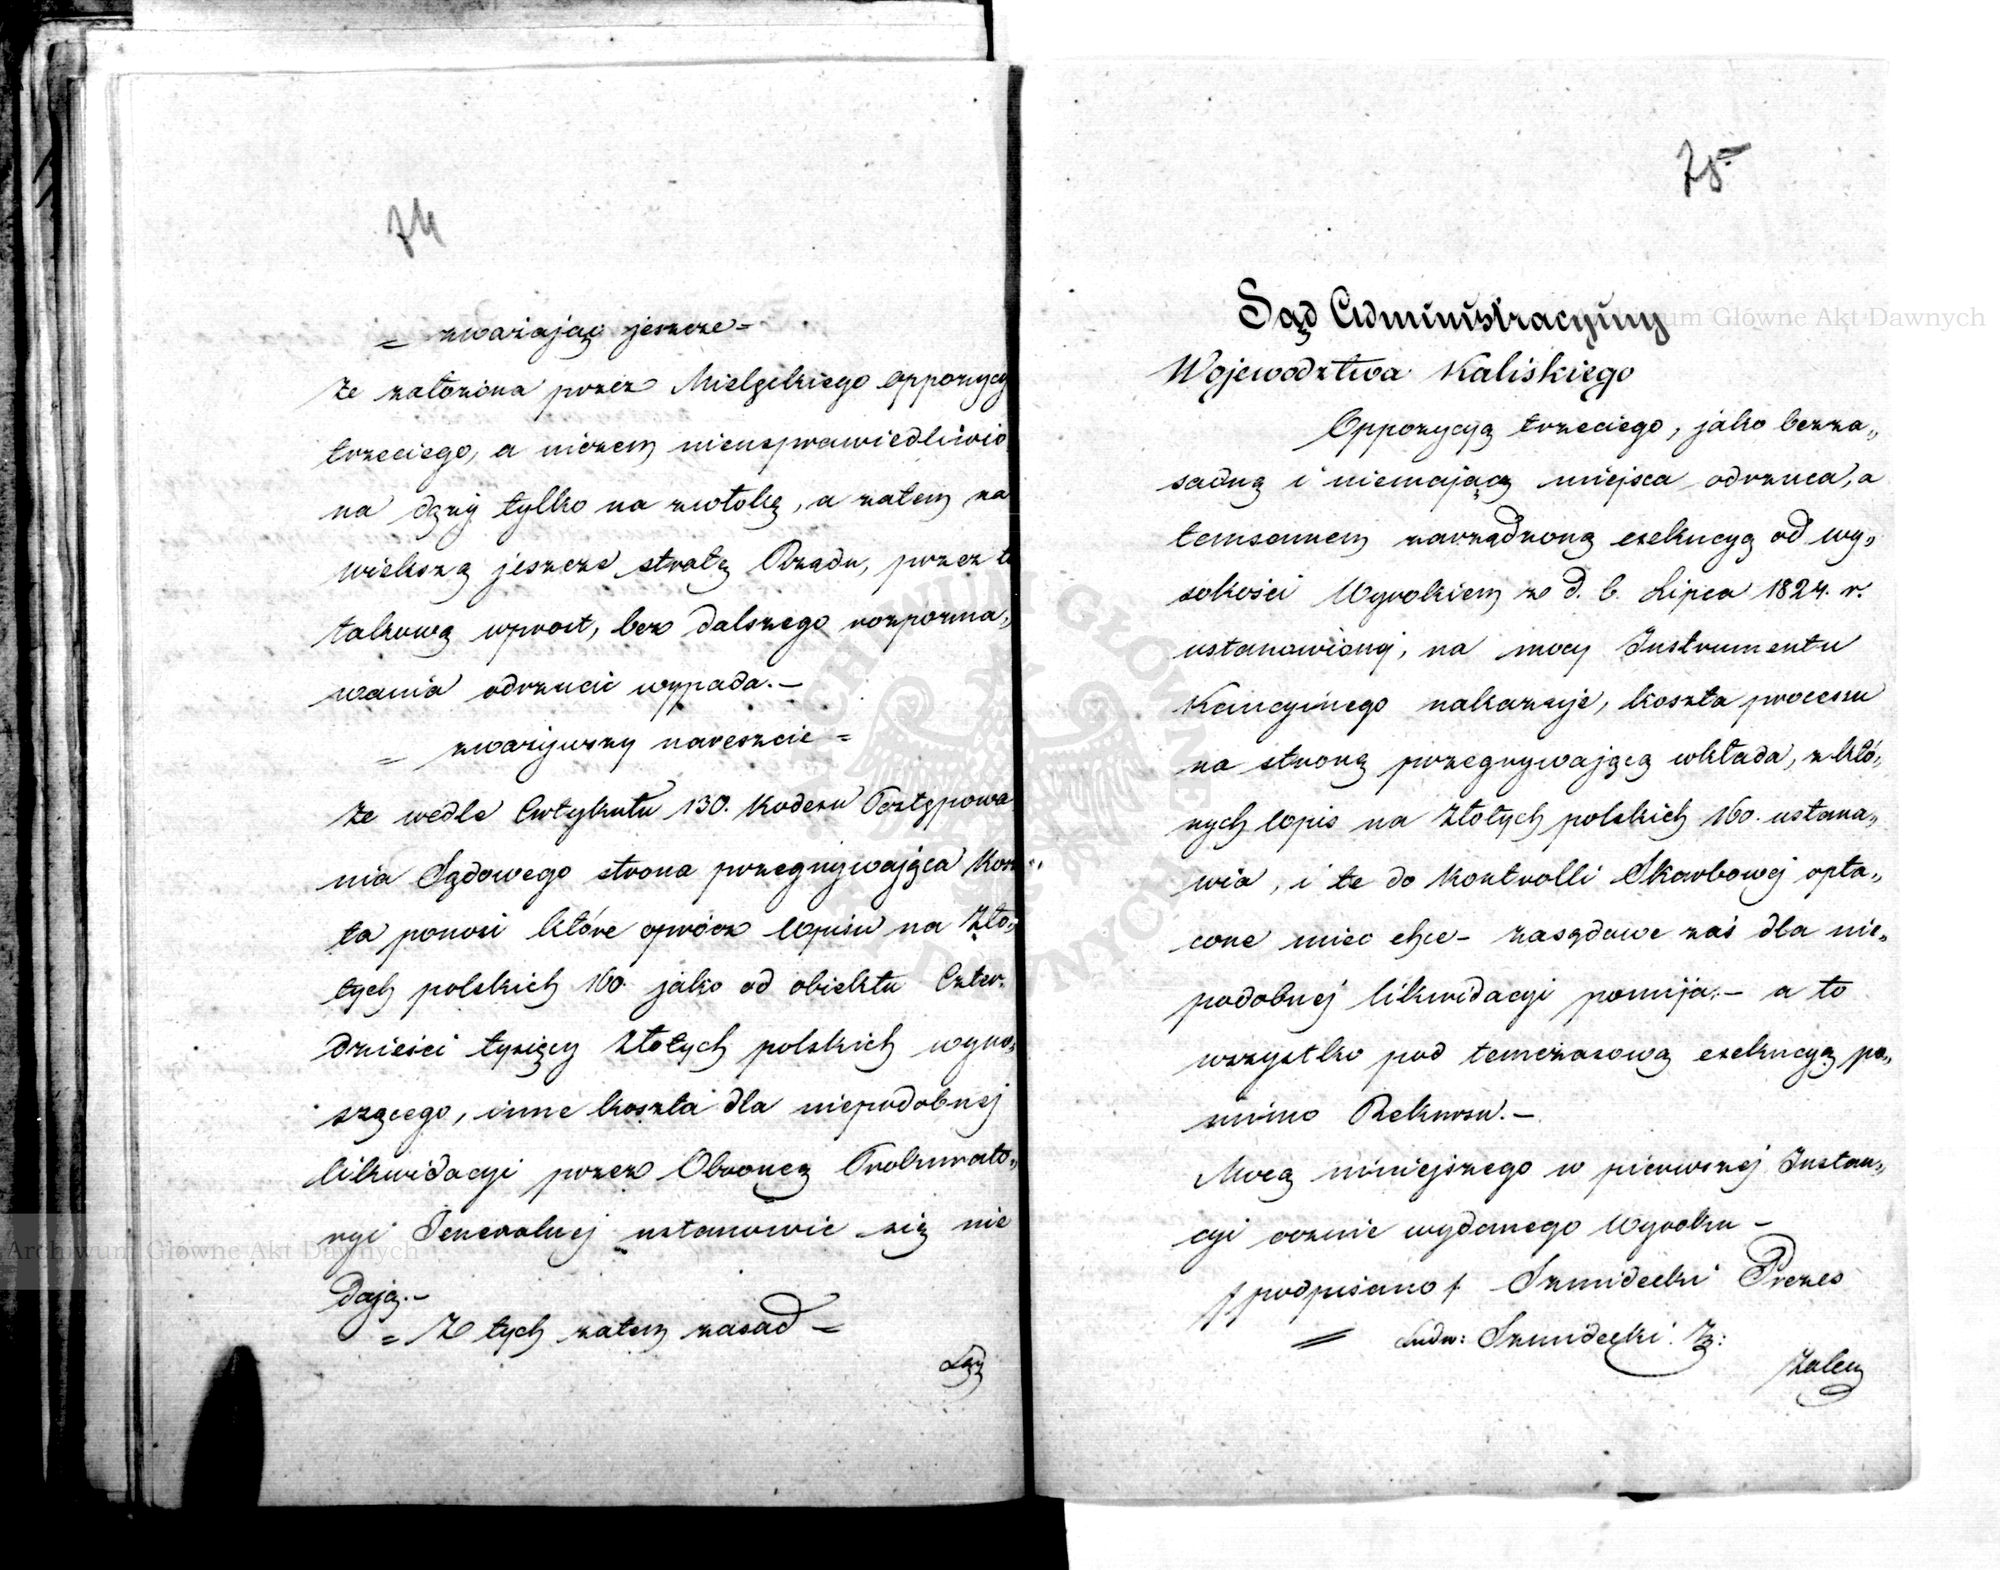 74
= zważając jeszcze =
że założona przez Mielęckiego oppozycy
trzeciego, a niczem nieusprawiedliwio
na dąży tylko na zwłokę, a zatem na
większą jeszcze stratę Rządu, przez to
takową wprost, bez dalszego rozpozna„
wania odrzucić wypada. –
= zważywszy nareszcie =
że wedle Artykułu 130. Kodexu Postępowa
nia Sądowego strona przegrywająca Kosz„
ta ponosi które oprócz Wpisu na Zło„
tych polskich 160. jako od obiektu Czter„
dzieści tysięcy Złotych polskich wyno„
szącego, inne koszta dla niepodobnej
likwidacyi przez Obrońcę Prokurato„
ryi Jeneralnej ustanowić się nie
dają. –
= Z tych zatem zasad =
Sąd
75.
Sąd Administracyiny
Województwa Kaliskiego
Oppozycyą trzeciego, jako bezza„
sadną i niemającą miejsca odrzuca, a
temsamem zarządzoną exekucyą od wy„
sokości Wyrokiem z d. 6. Lipca 1824. r.
ustanowionej, na mocy Instrumentu
Kaucyinego nakazuje, koszta processu
na stronę przegrywającą wkłada, z któ„
rych Wpis na Złotych polskich 160. ustana„
wia, i te do Kontrolli Skarbowej opła„
cone mieć chce – zasądowe zaś dla nie„
podobnej likwidacyi pomija. – a to
wszystko pod temczasową exekucyą po„
mimo Rekursu. –
Mocą niniejszego w pierwszej Instan„
cyi ocznie wydanego Wyroku –
/ podpisano / Szmidecki Prezes
= Ludw: Szmidecki. Z:
Zalew
Archiwum Główne Akt Dawnych
Archiwum Główne Akt Dawnych
ARCHIWUM GŁÓWNE AKT DAWNYCH